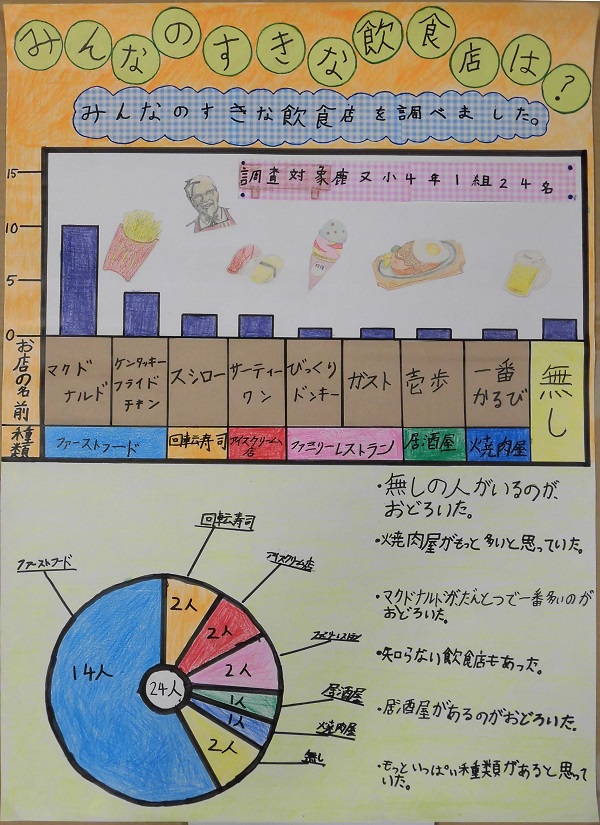 みんなのすきな飲食店は?
みんなのすきな飲食店を調べました。
調査対象鹿又小4年1組24名
15
10
5
0
お店の名前
マクドナルド
ケンタッキーフライドチキン
スシロー
サーティーワン
びっくりドンキー
ガスト
壱歩
一番かるび
無し
種類
ファーストフード
回転寿司
アイスクリーム店
ファミリーレストラン
居酒屋
焼肉屋
・無しの人がいるのが
おどろいた。
・焼肉屋がもっと多いと思っていた。
・マクドナルドが、だんとつで一番多いのが
おどろいた。
・知らない飲食店もあった。
・居酒屋があるのがおどろいた。
・もっといっぱい種類があると思って
いた。
ファーストフード
回転寿司
アイスクリーム店
ファミリーレストラン
居酒屋
焼肉屋
無し
14人
2人
2人
2人
1人
1人
2人
24人